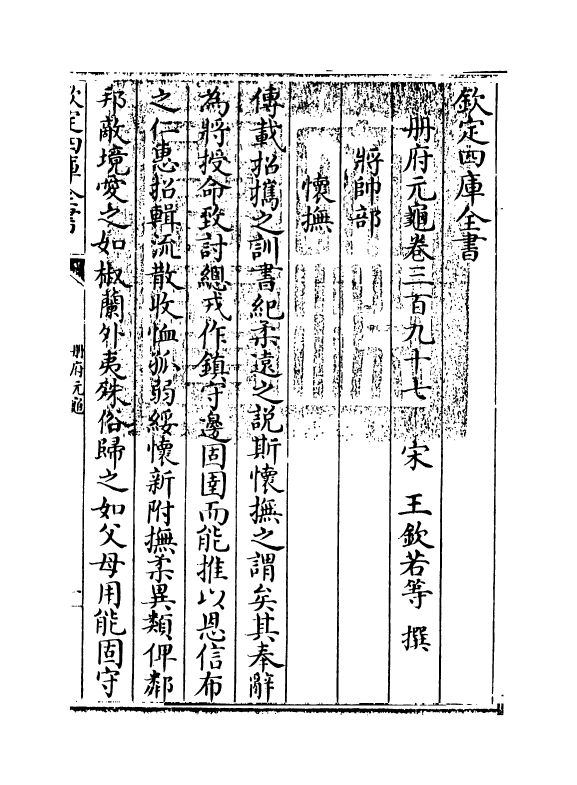 欽定四庫全書
册府元龜卷三百九十七　宋　王欽若等　撰
將帥部
懷撫
傳載招攜之訓書紀柔遠之説斯懷撫之謂矣其奉辭
為將授命致討總戎作鎮守邊固圉而能推以恩信布
之仁惠招輯流散收恤孤弱綏懷新附撫柔異類俾鄰
邦敵境愛之如椒蘭外夷殊俗歸之如父母用能固守
欽定四庫全書
册府元龜
一